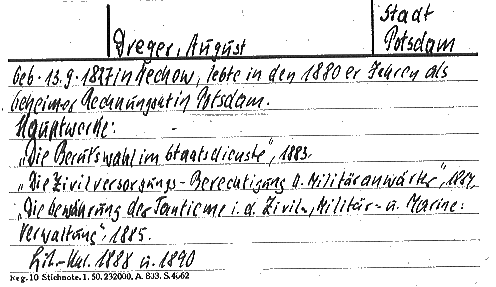 Stadt
Potsdam
Dreger, August
geb. 13.9.1827 in Rechow, lebte in den 1880er Jahren als
Geheimer Rechnungsrat in Potsdam.
Hauptwerke:
„Die Berufswahl im Staatsdienste", 1883.
„Die Zivilversorgungs-Berechtigung d. Militäranwärter", 1884.
„Die Gewährung der Tantieme i. d. Zivil-, Militär- u. Marine-
Verwaltung", 1885.
Lit.-Kal. 1888 u. 1890
Neg. 10 Stichnote. 1. 50. 232000. A. 803. S. 4662